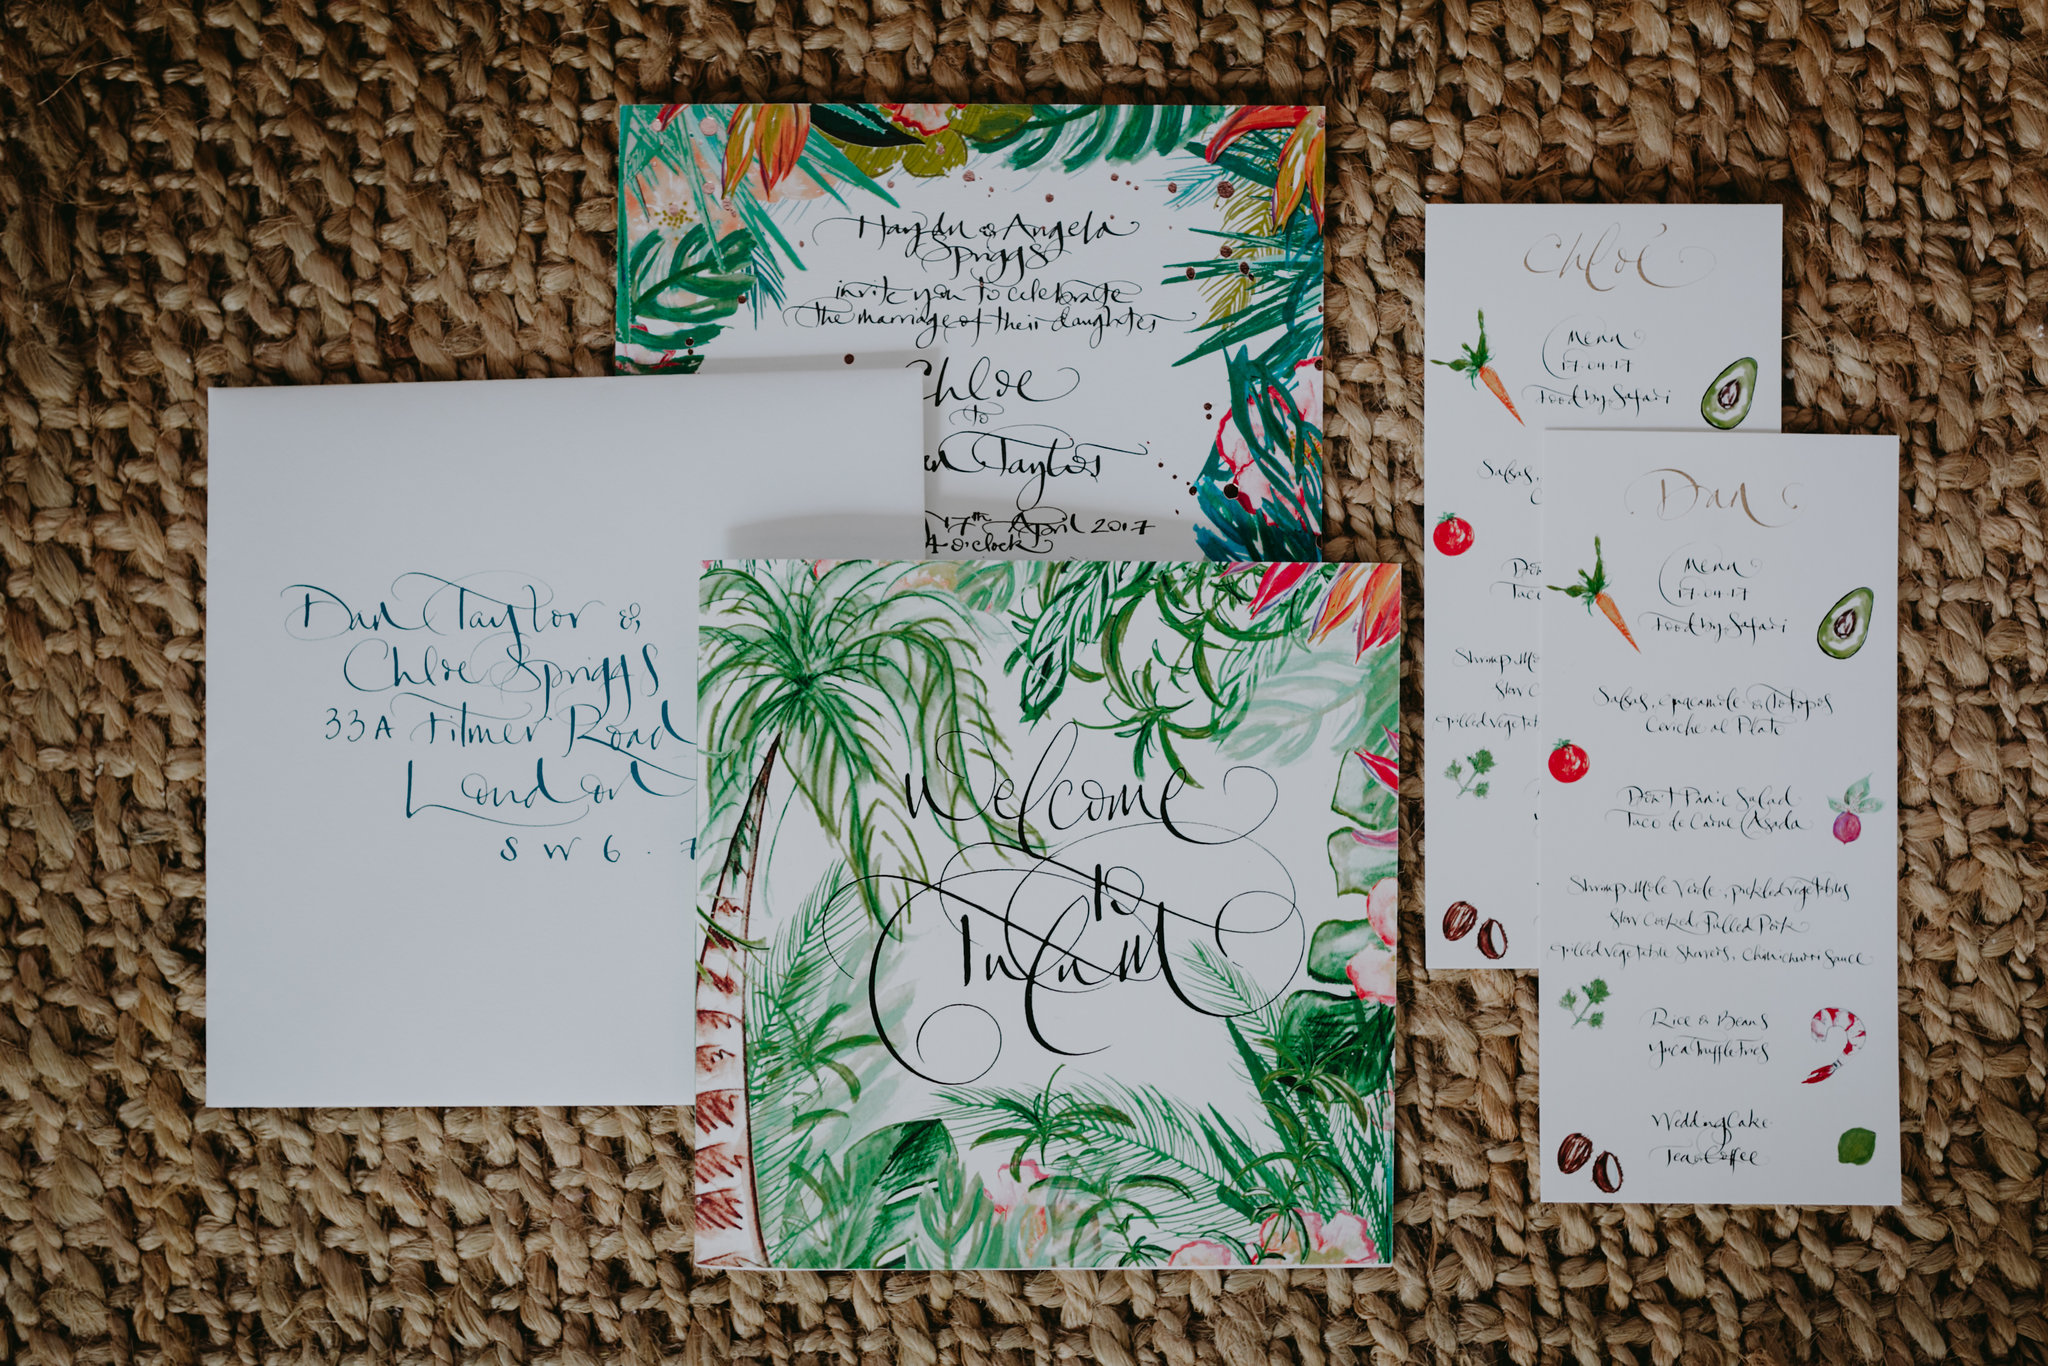 Haydn & Angela
Spriggs
invite you to celebrate
the marriage of their daughter
Chloe
to
Taylor
17th April 2017
4 o'clock
Dan Taylor &
Chloe Spriggs
33A Filmer Road
London
SW6.7
Welcome
to
Tulum
Chloe
Menu
17.04.17
Food by Safari
Salsas,
Taco
Shrimp Mo
Slow C
Grilled Vegetab
Dan
Menu
17.04.17
Food by Safari
Salsas, Guacamole & Totopos
Ceviche al Plato
Don't Panic Salad
Taco de Carne Asada
Shrimp Mole Verde, pickled vegetables
Slow Cooked Pulled Pork
Grilled Vegetable Skewers, Chimichurri Sauce
Rice & Beans
Yuca Truffle Fries
Wedding Cake
Tea & Coffee